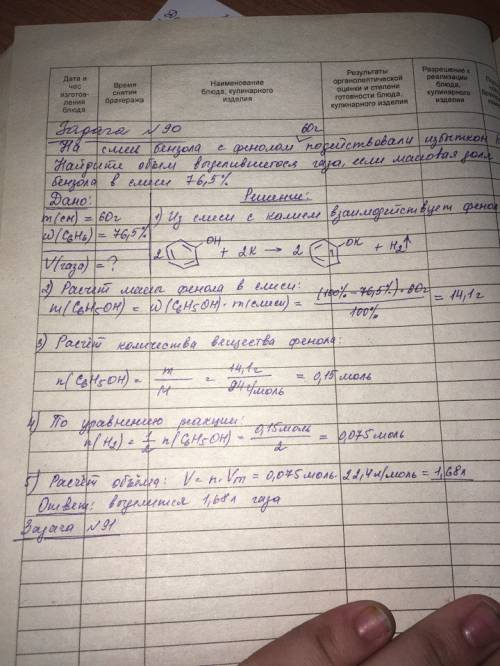 Дата и час изготов-ления блюда
Время снятия бракеража
Наименование блюда, кулинарного изделия
Результаты органолептической оценки и степени готовности блюда, кулинарного изделия
Разрешение к реализации блюда, кулинарного изделия
Задача №90 60г
На смесь бензола с фенолом подействовали избытком
Найдите объем выделившегося газа, если массовая дол
бензола в смеси 76,5%
Дано: Решение:
m(см) = 60г 1) Из смеси с калием взаимодействует фенол
w(C6H6) = 76,5%
2 OH + 2K → 2 OK + H2↑
V(газа) = ?
2) Расчет массы фенола в смеси:
m(C6H5OH) = w(C6H5OH) · m(смеси) = (100% - 76,5%) · 60г / 100% = 14,1г
3) Расчёт количества вещества фенола:
n(C6H5OH) = m / M = 14,1г / 94г/моль = 0,15 моль
4) По уравнению реакции:
n(H2) = 1/2 n(C6H5OH) = 0,15моль / 2 = 0,075 моль
5) Расчёт объёма: V = n · Vm = 0,075моль · 22,4л/моль = 1,68л
Ответ: выделится 1,68л газа
Задача №91